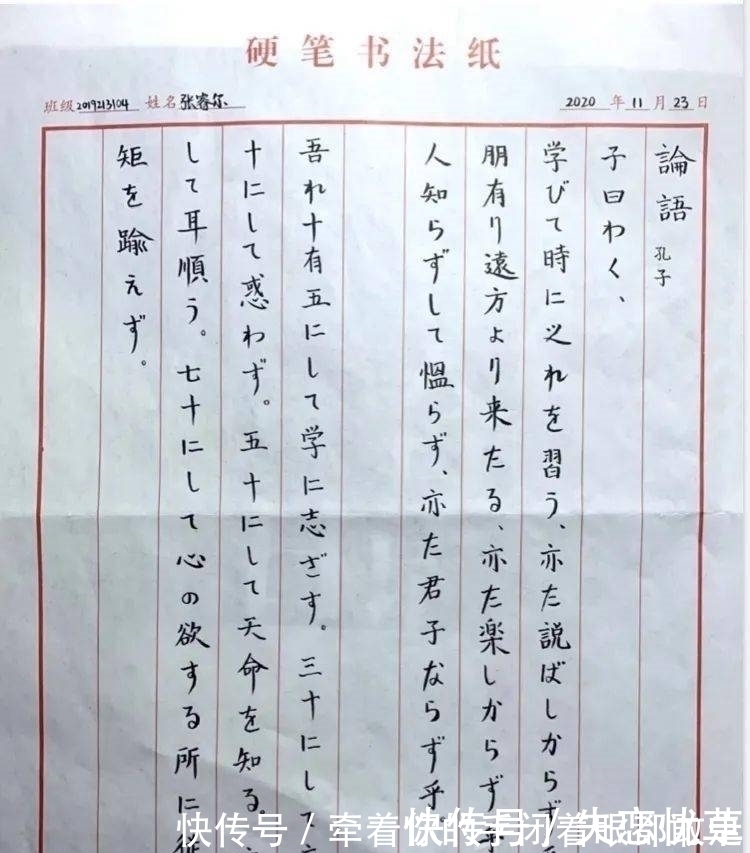 硬笔书法纸
班级 2019213104 姓名 张睿尔
2020 年 11 月 23 日
論語 孔子
子曰わく、
学びて時に之れを習う、亦た説ばしからず
朋有り遠方より来たる、亦た楽しからず乎
人知らずして愠らず、亦た君子ならず乎
吾れ十有五にして学に志ざす。三十にして
十にして惑わず。五十にして天命を知る。
して耳順う。七十にして心の欲する所に従
矩を踰えず。
快传号 / 牵着你的手闭着眼都敢走
快传号 /